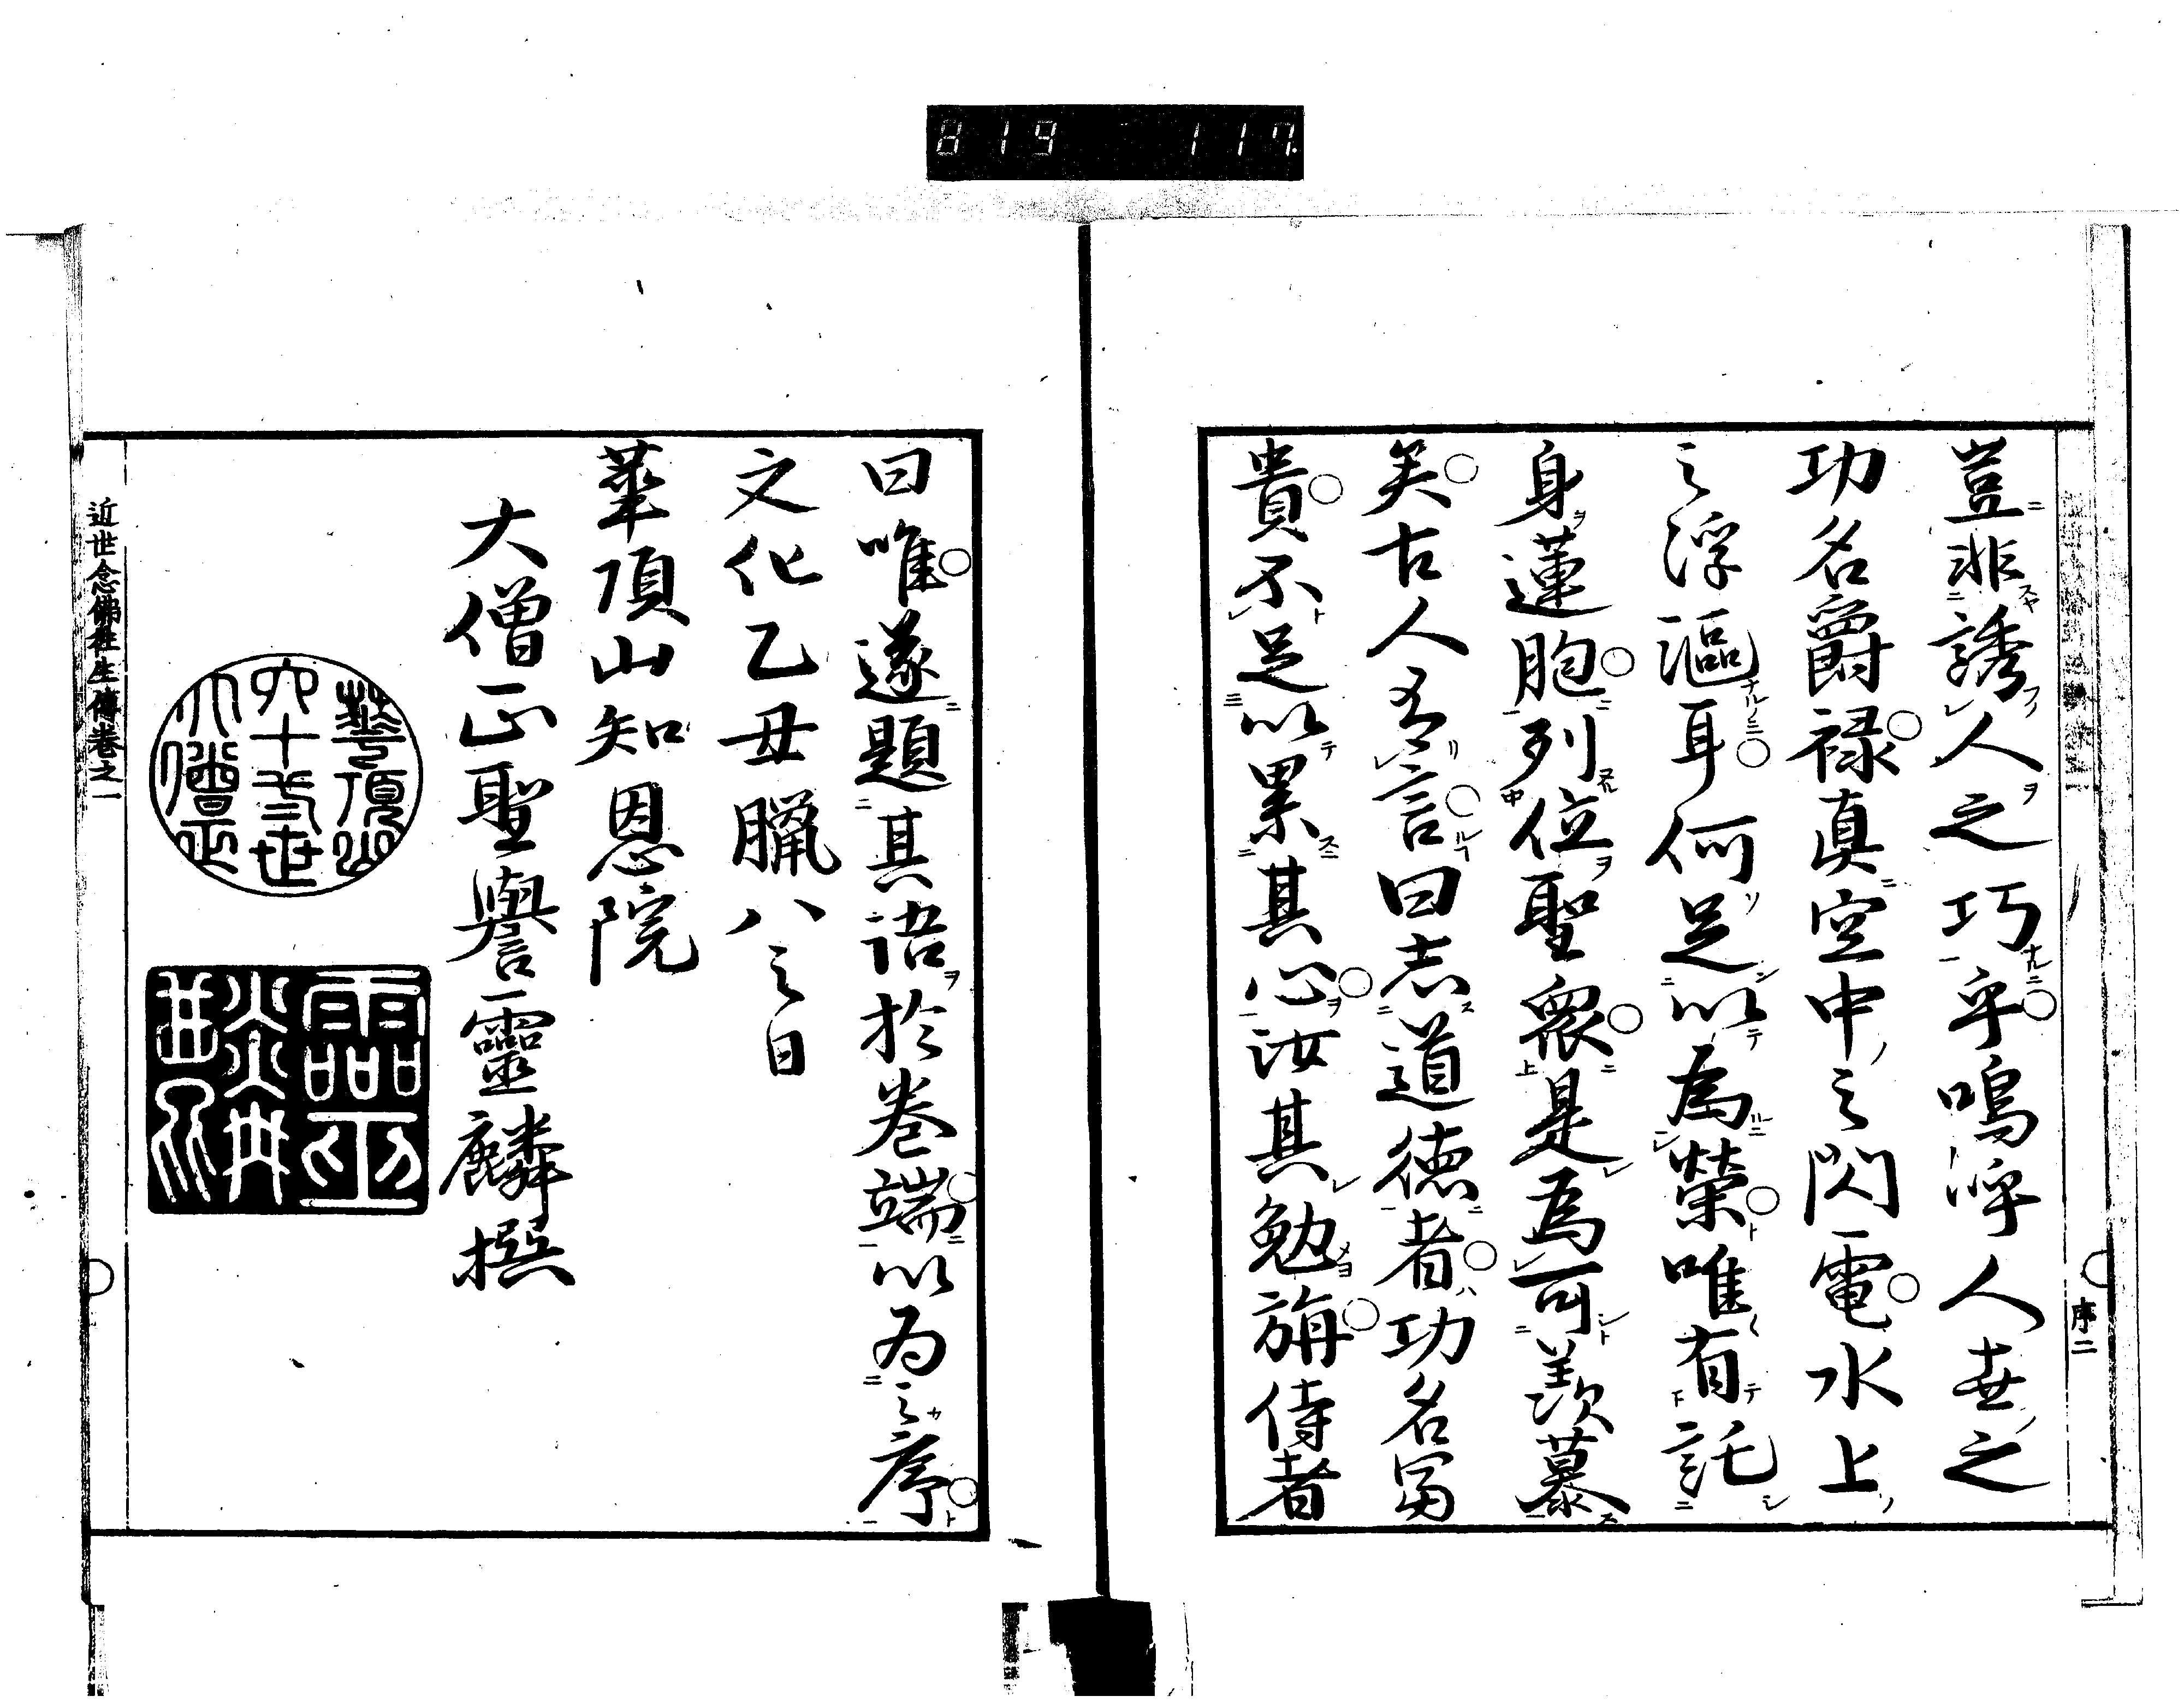 819 117.
豈非誘人之巧乎嗚呼人世之
功名爵禄真空中之閃電水上
之浮漚耳何足以為榮唯有託
身蓮胞列位聖衆是為可羨慕
矣古人有言曰志道徳者功名冨
貴不足以累其心汝其勉旃侍者
序二
曰唯遂題其語於巻端以为之序
文化乙丑臘八之日
華頂山知恩院
大僧正聖譽靈麟撰
華頂山
六十世
大僧正
近世念佛往生傳巻之一